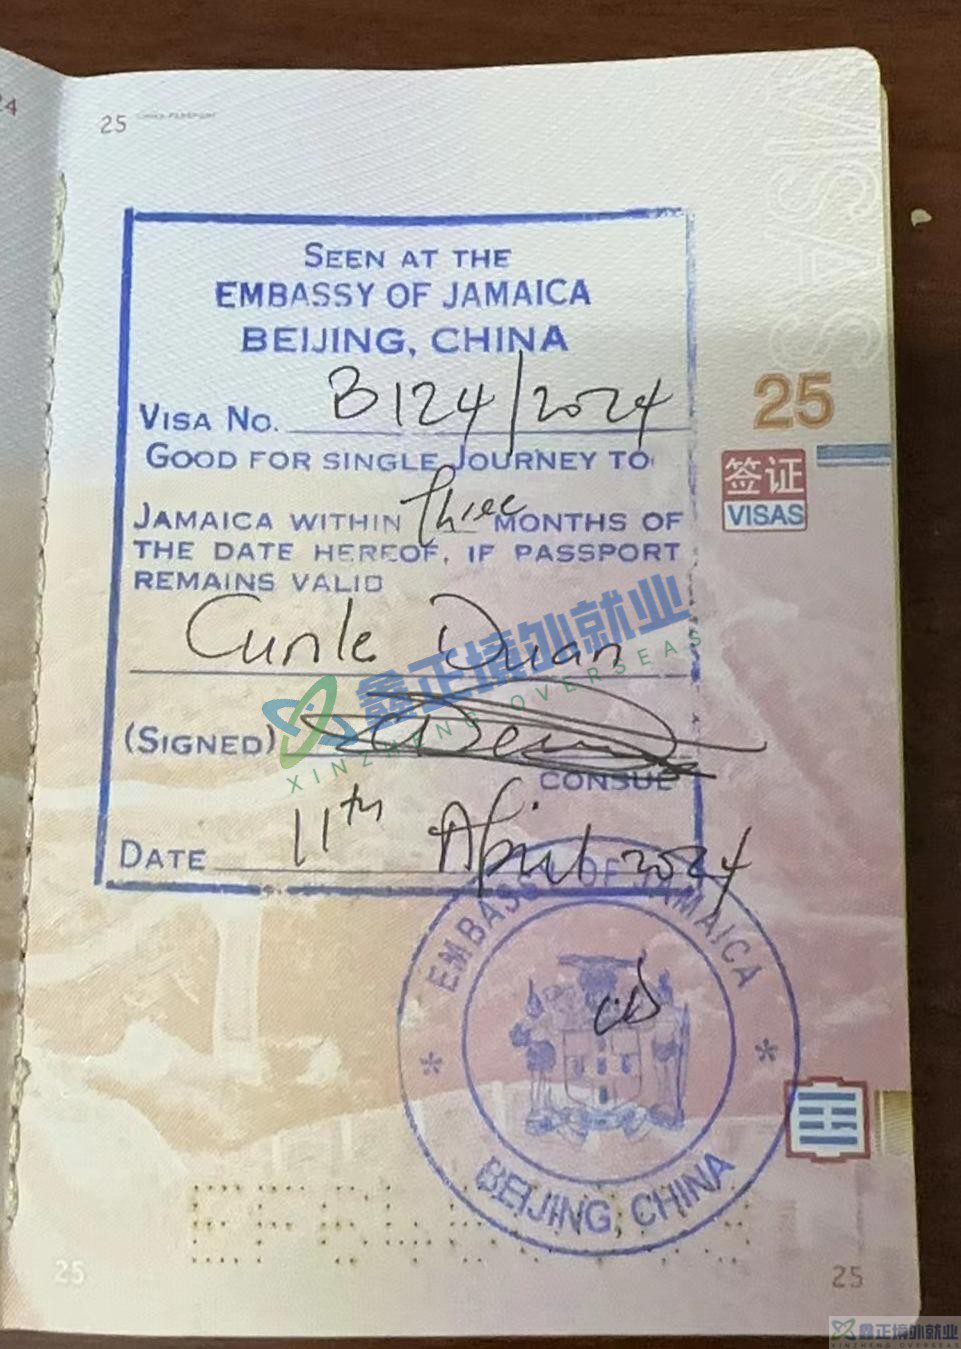 24
25 CHINA PASSPORT
VISAS
SEEN AT THE
EMBASSY OF JAMAICA
BEIJING, CHINA
VISA NO. B124/2024
GOOD FOR SINGLE JOURNEY TO
JAMAICA WITHIN three MONTHS OF
THE DATE HEREOF, IF PASSPORT
REMAINS VALID
25
签证
VISAS
鑫正境外就业
XINZHENG OVERSEAS
(SIGNED)
CONSUL
DATE 11th April 2024
EMBASSY OF JAMAICA
BEIJING, CHINA
25
25
鑫正境外就业
XINZHENG OVERSEAS